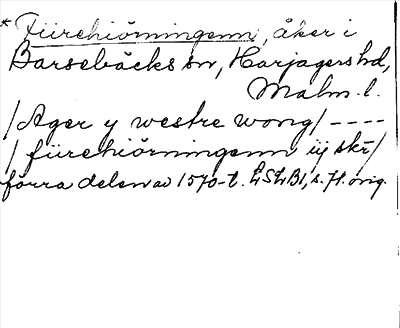 * Fiirehiörningenn, åker i
Barsebäcks sn, Harjagers hd,
Malm. l.
/Ager y westre wong/ ----
/ fiirehiörningenn iij skr/
förra delen av 1570-t. LSLB1, s. 71. orig.